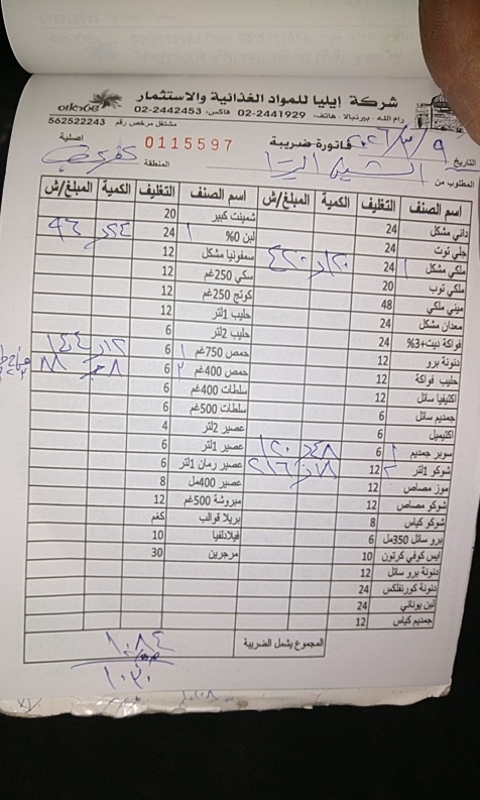 شركة إيليا للمواد الغذائية والاستثمار
رام الله - بورنبالا - هاتف: 02-2441929 فاكس: 02-2442453
مشتغل مرخص رقم 562522243
فاتورة ضريبة 0115597 اصلية
التاريخ ٢٠٢٦/٣/٩
المطلوب من
المنطقة
اسم الصنف التغليف الكمية المبلغ/ش اسم الصنف التغليف الكمية المبلغ/ش
داني مشكل 24 شمينت كبير 20
جلي توت 24 لبن 0% ١ 24
ملكي مشكل ١ 24 سمفونيا مشكل 12
ملكي توب 20 سكي 250غم 12
ميني ملكي 48 كوتج 250غم 12
معدان مشكل 24 حليب 1لتر 12
فواكة ديت+3% 24 حليب 2لتر 6
دنونة برو 12 حمص 750غم ١ 6 ١٤٤
حليب فواكة 12 حمص 400غم ٢ 6
اكتيفيا سائل 12 سلطات 400غم 6
جمديم سائل 6 سلطات 500غم 6
اكتيميل 6 عصير 2لتر 4
سوبر جمديم ١ 6 عصير 1لتر 6
شوكو 1لتر 12 ٢١٦ عصير رمان 1لتر 6
موز مصاص 12 عصير 400مل 8
شوكو مصاص 12 مبروشة 500غم 12
شوكو كياس 8 بريلا قوالب كغم
برو سائل 350مل 6 فيلادلفيا 10
ايس كوفي كرتون 10 مرجرين 30
دنونة برو سائل 12
دنونة كورنفلكس 24
لبن يوناني 24
جمديم كياس 12
المجموع يشمل الضريبة ١٠٨٤
١٠٣٠